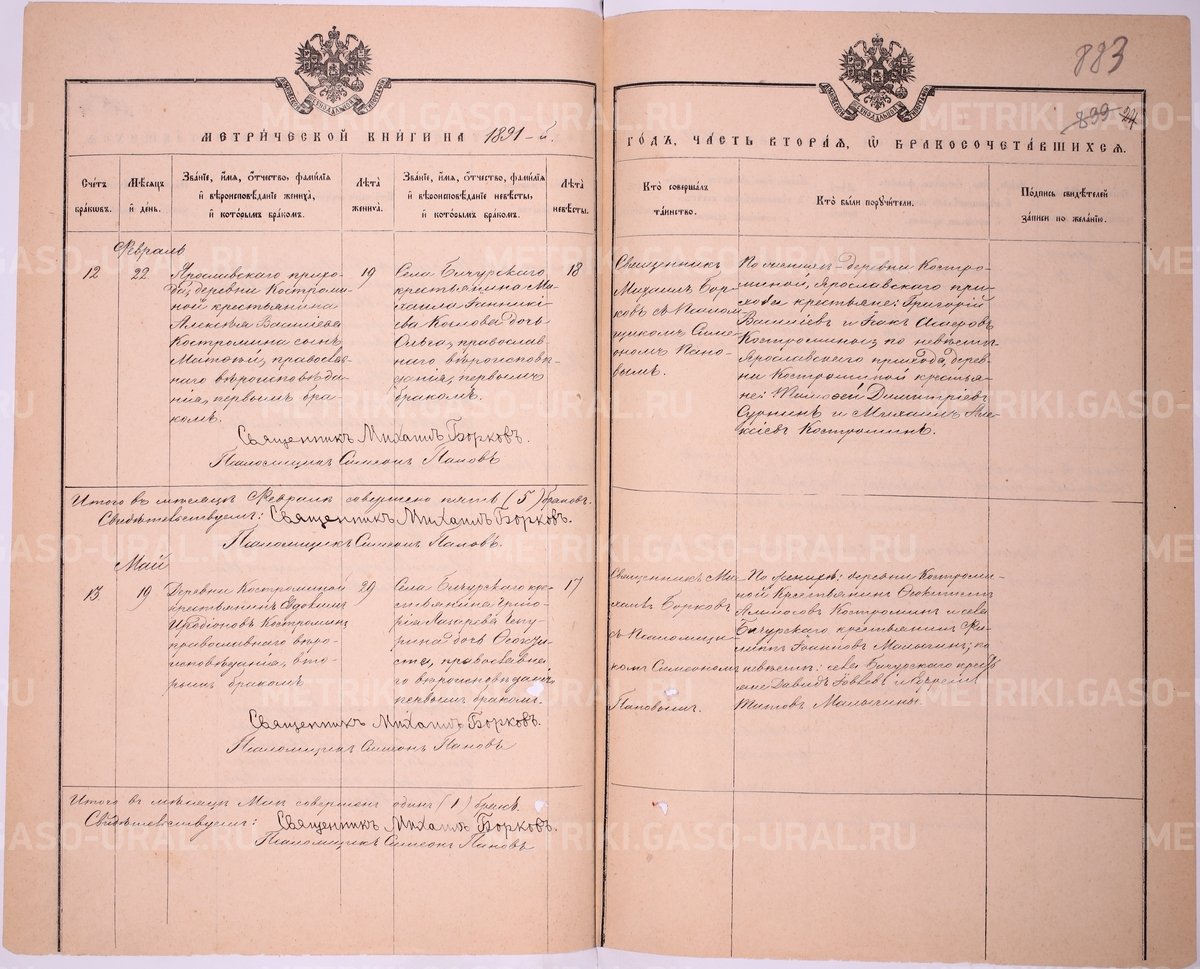 883
899
24
МЕТРИЧЕСКОЙ КНИГИ НА 1891-й.
ГОДЪ, ЧАСТЬ ВТОРАЯ, Ѿ БРАКОСОЧЕТАВШИХСЯ.
Счетъ браковъ.
Мѣсяцъ и день.
Званіе, имя, отчество, фамилія
и вѣроисповѣданіе жениха,
и которымъ бракомъ.
Лѣта жениха.
Званіе, имя, отчество, фамилія
и вѣроисповѣданіе невѣсты,
и которымъ бракомъ.
Лѣта невѣсты.
Кто совершалъ
таинство.
Кто были поручители.
Подпись свидѣтелей
записи по желанію.
Февраль
12
22
Ярославскаго прихо-
да, деревни Костроми-
ной крестьянина
Алексѣя Василіева
Костромина сынъ
Матѳей, православ-
наго вѣроисповѣда-
нія, первымъ бра-
комъ.
19
Села Бичурскаго
крестьянина Ми-
хаила
Козлова дочь
Ольга, православ-
наго вѣроисповѣ-
данія, первымъ
бракомъ.
18
Священникъ
Михаилъ Бор-
ковъ съ Псалом
щикомъ Симе-
ономъ Пано-
вымъ.
По женихѣ деревни Костро-
миной, Ярославскаго при-
хода крестьяне: Григорій
Василіевъ и Исакъ
Костромины; по невѣстѣ
Ярославскаго прихода, дерев-
ни Костроминой крестья-
не: Тимоѳей Димитріевъ
Сурнинъ и Михаилъ Але-
ксіевъ Костроминъ.
Священникъ Михаилъ Борковъ.
Псаломщикъ Симеонъ Пановъ
Итого въ мѣсяцѣ Февралѣ совершено пять (5) браковъ.
Свидѣтельствуемъ: Священникъ Михаилъ Борковъ.
Псаломщикъ Симеонъ Пановъ.
Май
13
19
Деревни Костроминой
крестьянинъ Евдокимъ
Иродіоновъ Костроминъ
православнаго вѣро-
исповѣданія, вто-
рымъ бракомъ
29
Села Бичурскаго кре-
стьянина Григо-
рія Лазарева Чепу-
рина дочь
православна-
го вѣроисповѣданія
первымъ бракомъ.
17
Священникъ Ми-
хаилъ Борковъ
съ Псаломщи-
комъ Симеономъ
Пановымъ.
По женихѣ: деревни Костроми-
ной крестьянинъ
Костроминъ и села
Бичурскаго крестьянинъ Фи-
липпъ Іоанновъ Малыгинъ; по
невѣстѣ: села Бичурскаго кресть
яне Давидъ и
Титовъ Малыгины.
Священникъ Михаилъ Борковъ.
Псаломщикъ Симеонъ Пановъ
Итого въ мѣсяцѣ Маѣ совершенъ одинъ (1) бракъ.
Свидѣтельствуемъ: Священникъ Михаилъ Борковъ.
Псаломщикъ Симеонъ Пановъ
METRIKI.GASO-URAL.RU